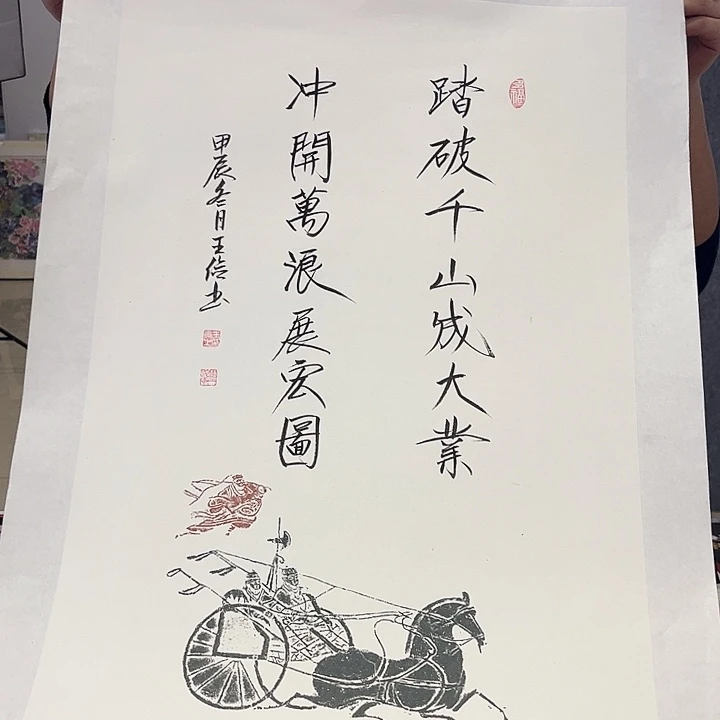 踏破千山成大业
冲開萬浪展宏圖
甲辰冬月王信书